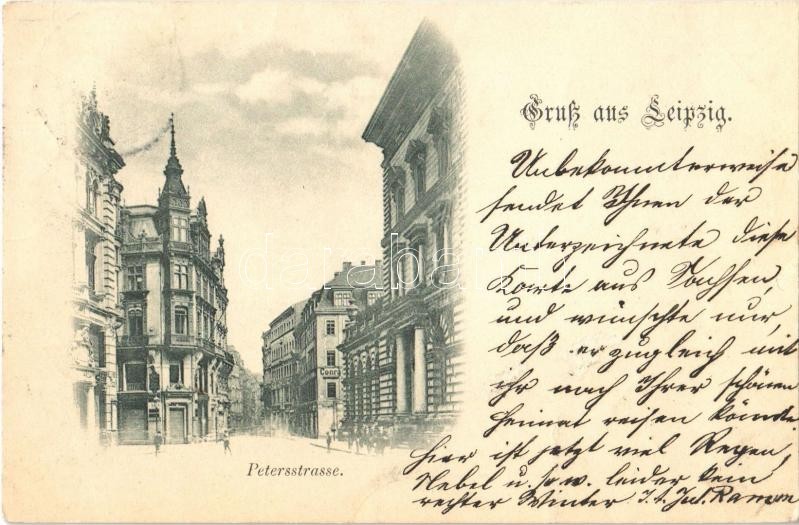 Gruß aus Leipzig.
Unbekannterweise
sendet Ihnen der
Unterzeichnete diese
Karte aus Sachsen,
und wünschte nur,
daß er zugleich mit
ihr nach Ihrer schönen
Heimat reisen könnte.
Hier ist jetzt viel Regen,
Nebel u.s.w. leider kein
rechter Winter
Conr
Petersstrasse.
darabanth